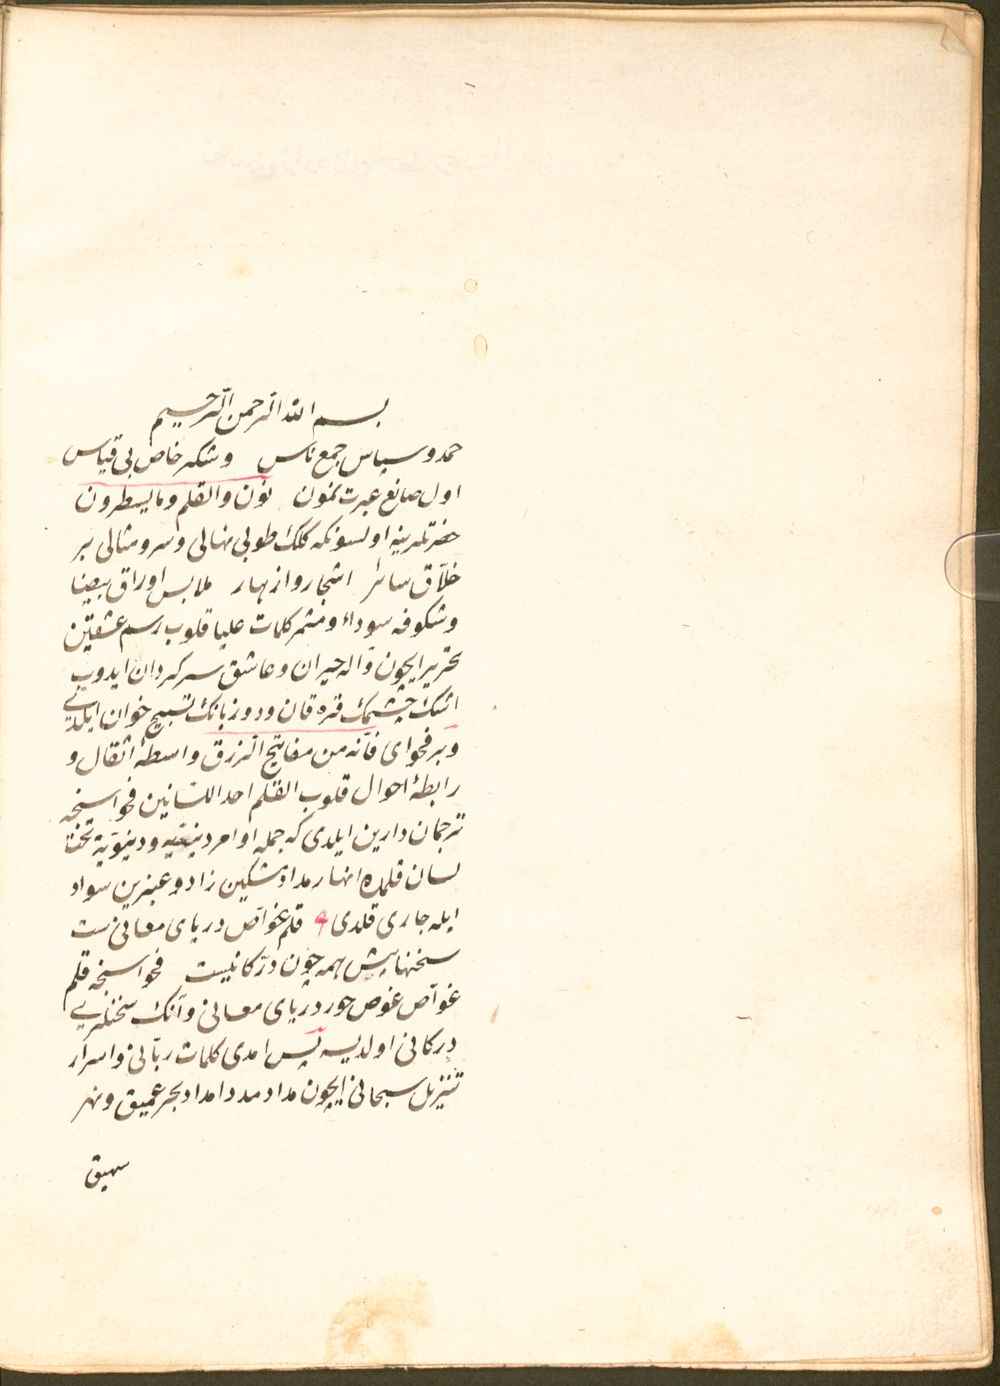 بسم الله الرّحمن الرّحيم
حمد و سپاس جمع ناس و شكر خاص بى قياس
اول صانع عبرت نمون نون والقلم وما يسطرون
حضرتلرينه اولسونكه كلك طوبى نهالى و سرو مثالى بر
خلّاق سائر اشجار و ازهار ملابس اوراق بيضا
و شكوفه سوداء و مثمر كلمات عليا قلوب رسم عشقتين
تحرير ايچون واله حيران و عاشق سركردان ايدوب
اشك چشمك قره قان و دو زبانك تسبيح خوان ايلدى
و بر فحواى فانّه من مفاتيح الرّزق واسطۀ اثقال و
رابطۀ احوال قلوب القلم احد اللسانين فحواسنجه
ترجمان دارين ايلدى كه جمله اوامر دينيّه و دنيويّه تحت
لسان قلمده انهار مداد مشكين زاد و عنبرين سواد
ايله جارى قلدى قلم غوّاص درياى معانى ست
سخنهايش همه چون درّ كانيست فحواسنجه قلم
غوّاص غوص خور درياى معانى و آنك سخنلرى
درّ كانى اولديسه پس امدى كلمات ربّانى و اسرار
تنزيل سبحانى ايچون مداد مدد امداد بحر عميق و نهر
سهيق